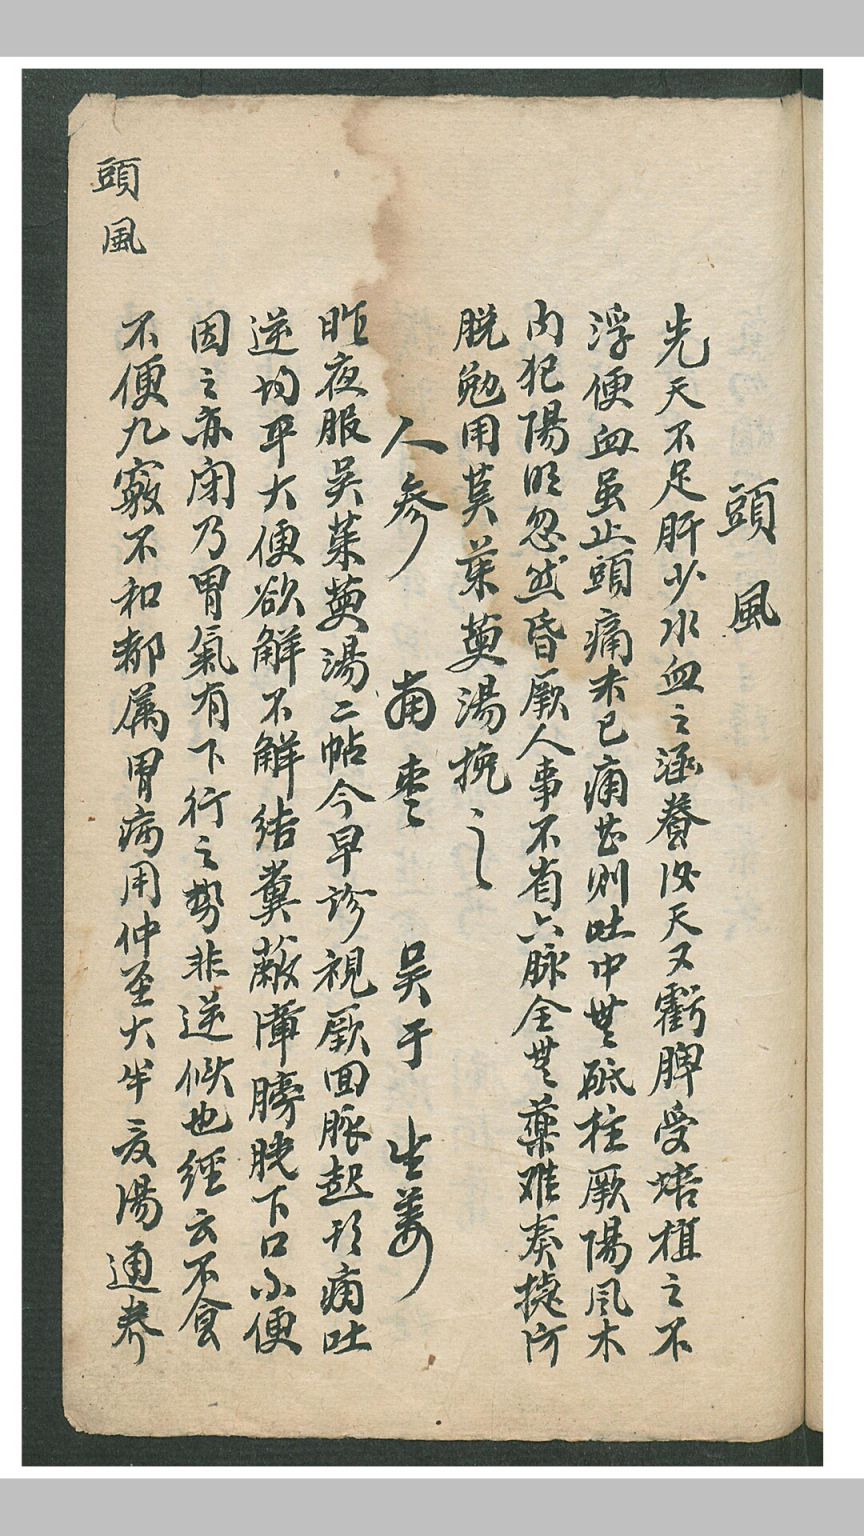 頭風
先天不足肝少水血之涵養後天又虧脾受培植之不
浮便血虽止頭痛未已痛甚則吐中無砥柱厥陽風木
内犯陽明忽然昏厥人事不省六脉全無藥难奏捷
脱勉用吳茱萸湯挽之
人參 南枣 吴于 生姜
昨夜服吳茱萸湯二帖今早诊視厥回脉起頭痛吐
逆均平大便欲解不解結糞蔽障膀胱下口小便
因之亦闭乃胃氣有下行之勢非逆候也經云不食
不便九竅不和都属胃病用仲圣大半夏湯通養
頭風